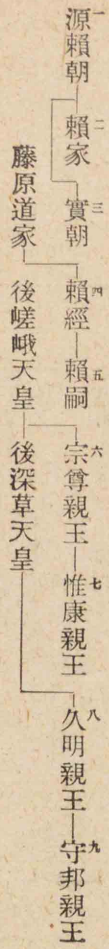 一源賴朝
二賴家
三實朝
藤原道家
四賴經
五賴嗣
後嵯峨天皇
六宗尊親王
七惟康親王
後深草天皇
八久明親王
九守邦親王